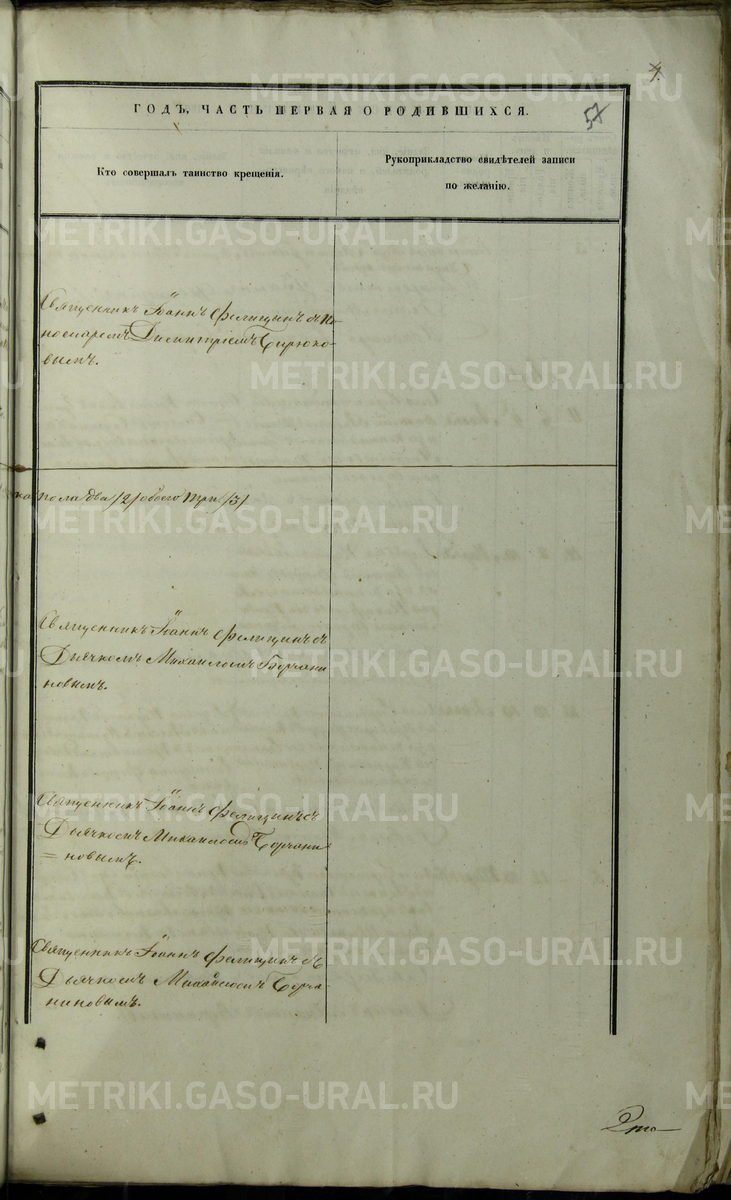 57
ГОДЪ, ЧАСТЬ ПЕРВАЯ О РОДИВШИХСЯ.
Кто совершалъ таинство крещенія.
Рукоприкладство свидѣтелей записи
по желанію.
Священникъ Іоаннъ Фелицынъ съ По
номаремъ Димитріемъ Бирюко-
вымъ.
пола два /2/ обоего три /3/
Священникъ Іоаннъ Фелицынъ съ
Дьячкомъ Михаиломъ Борчани
новымъ.
Священникъ Іоаннъ Фелицынъ съ
Дьячкомъ Михаиломъ Борчани
= новымъ.
Священникъ Іоаннъ Фелицынъ съ
Дьячкомъ Михаиломъ Борча-
ниновымъ.
METRIKI.GASO-URAL.RU